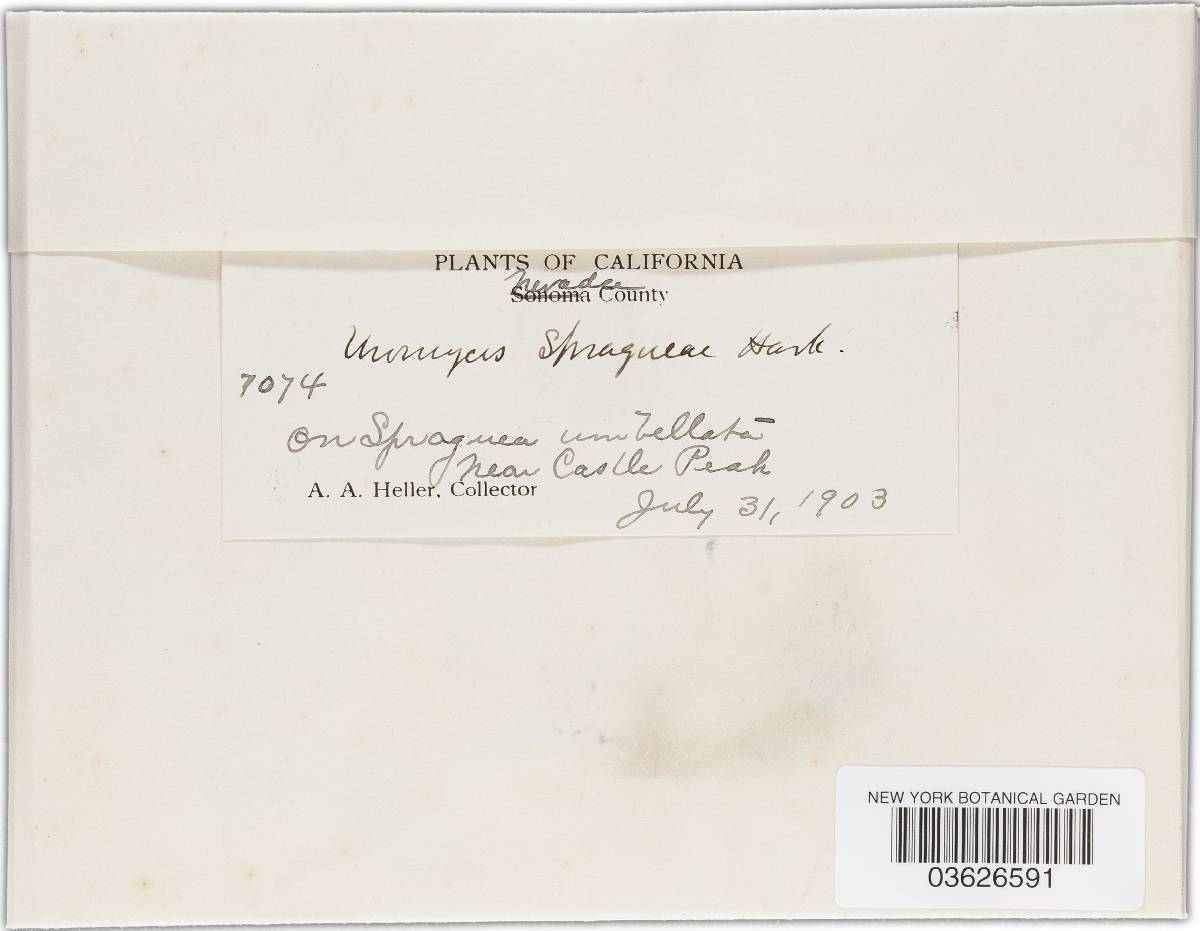 PLANTS OF CALIFORNIA
Nevada
Sonoma County
Uromyces Spragueae Hark.
7074
on Spraguea umbellata
near Castle Peak
A. A. Heller, Collector
July 31, 1903
NEW YORK BOTANICAL GARDEN
03626591